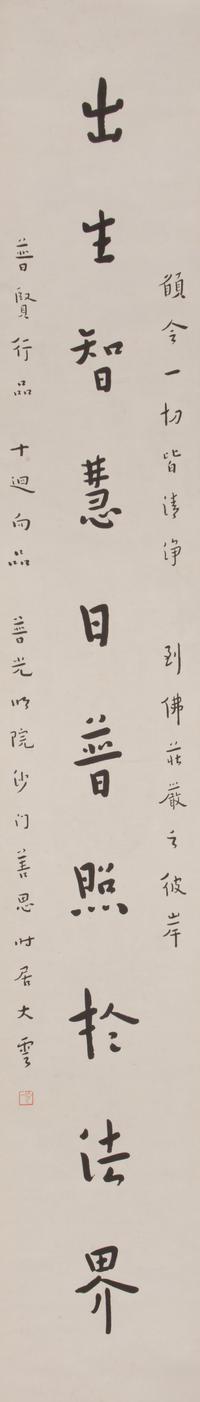 願令一切皆清淨 到佛莊嚴之彼岸
出生智慧日普照於法界
普賢行品 十迴向品 普光明院沙门善思时居大雲